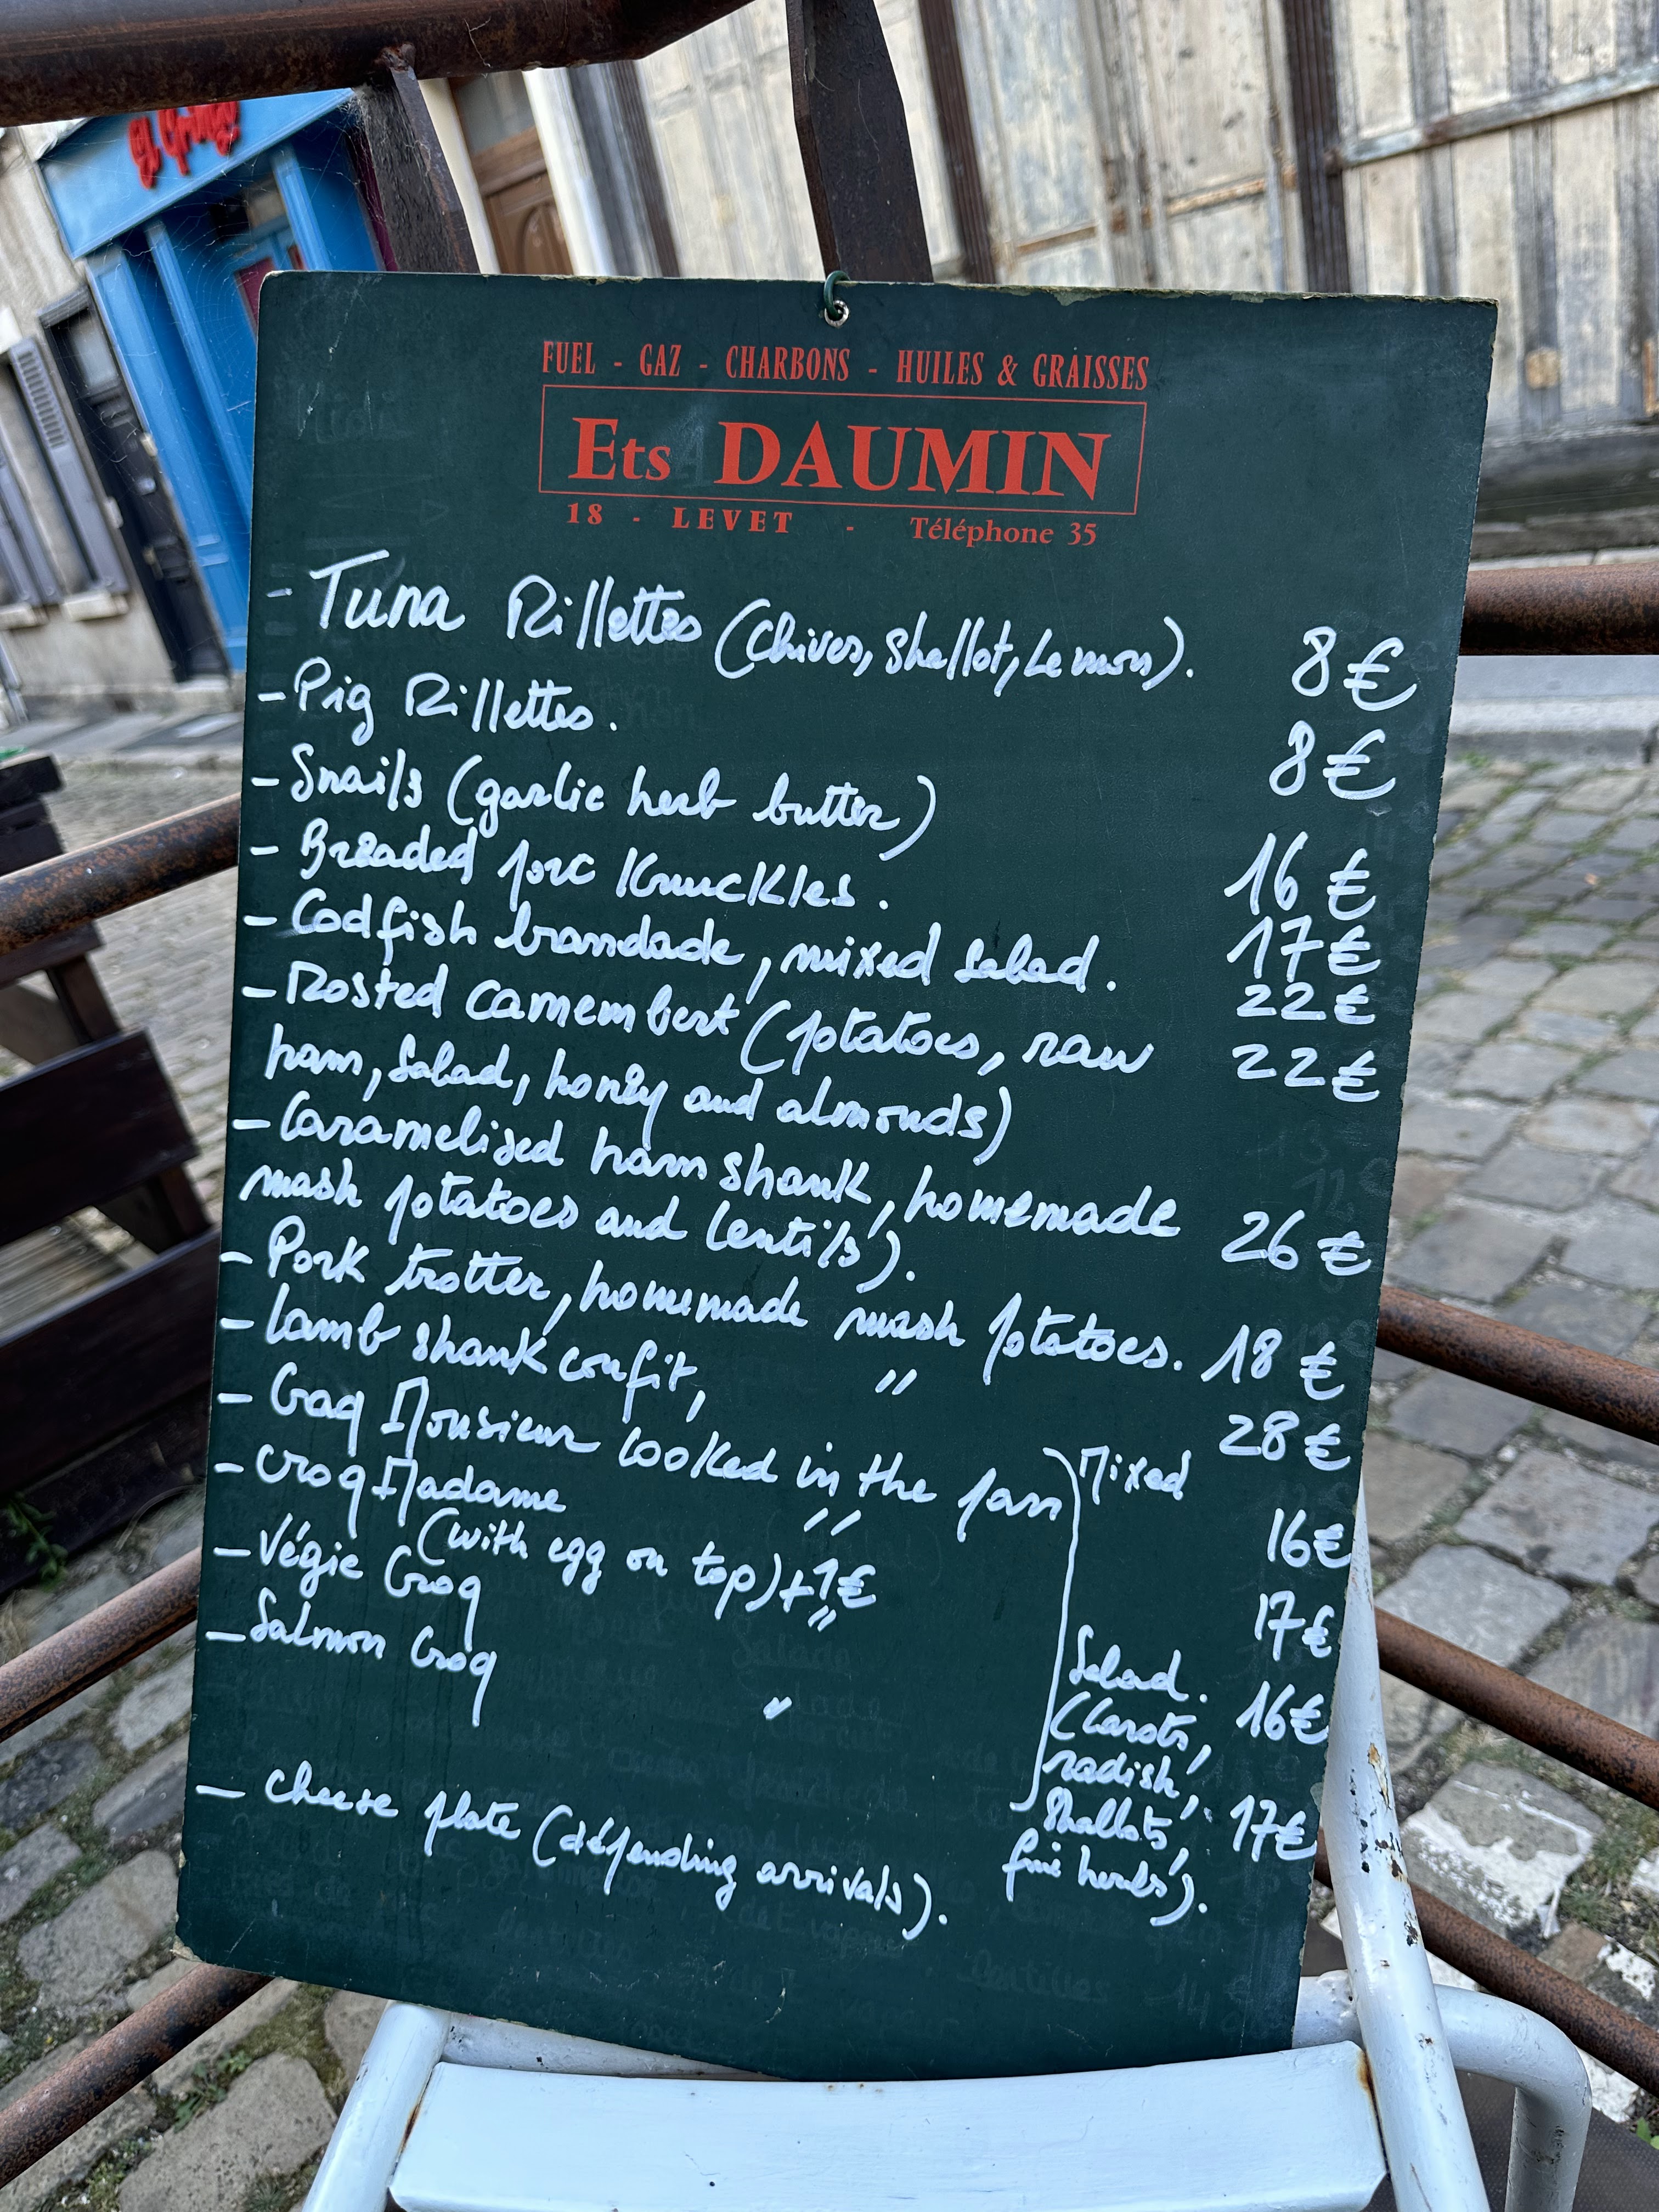 FUEL - GAZ - CHARBONS - HUILES & GRAISSES
Ets DAUMIN
18 - LEVET - Téléphone 35
- Tuna Rillettes (Chives, Shallot, Lemon). 8€
- Pig Rillettes. 8€
- Snails (garlic herb butter) 16€
- Breaded porc Knuckles. 17€
- Codfish brandade, mixed salad. 22€
- Rosted camembert (potatoes, raw 22€
ham, Salad, honey and almonds)
- Caramelised ham shank, homemade
mash potatoes and lentils). 26€
- Pork trotter, homemade mash potatoes. 18€
- Lamb shank confit, " 28€
- Croq Monsieur cooked in the pan 16€
- Croq Madame " 17€
(with egg on top) +1€
- Végie Croq " 16€
- Salmon Croq " 17€
Mixed
Salad.
(Carots,
radish,
Shallots,
fine herbs).
- Cheese plate (dépending arrivals).